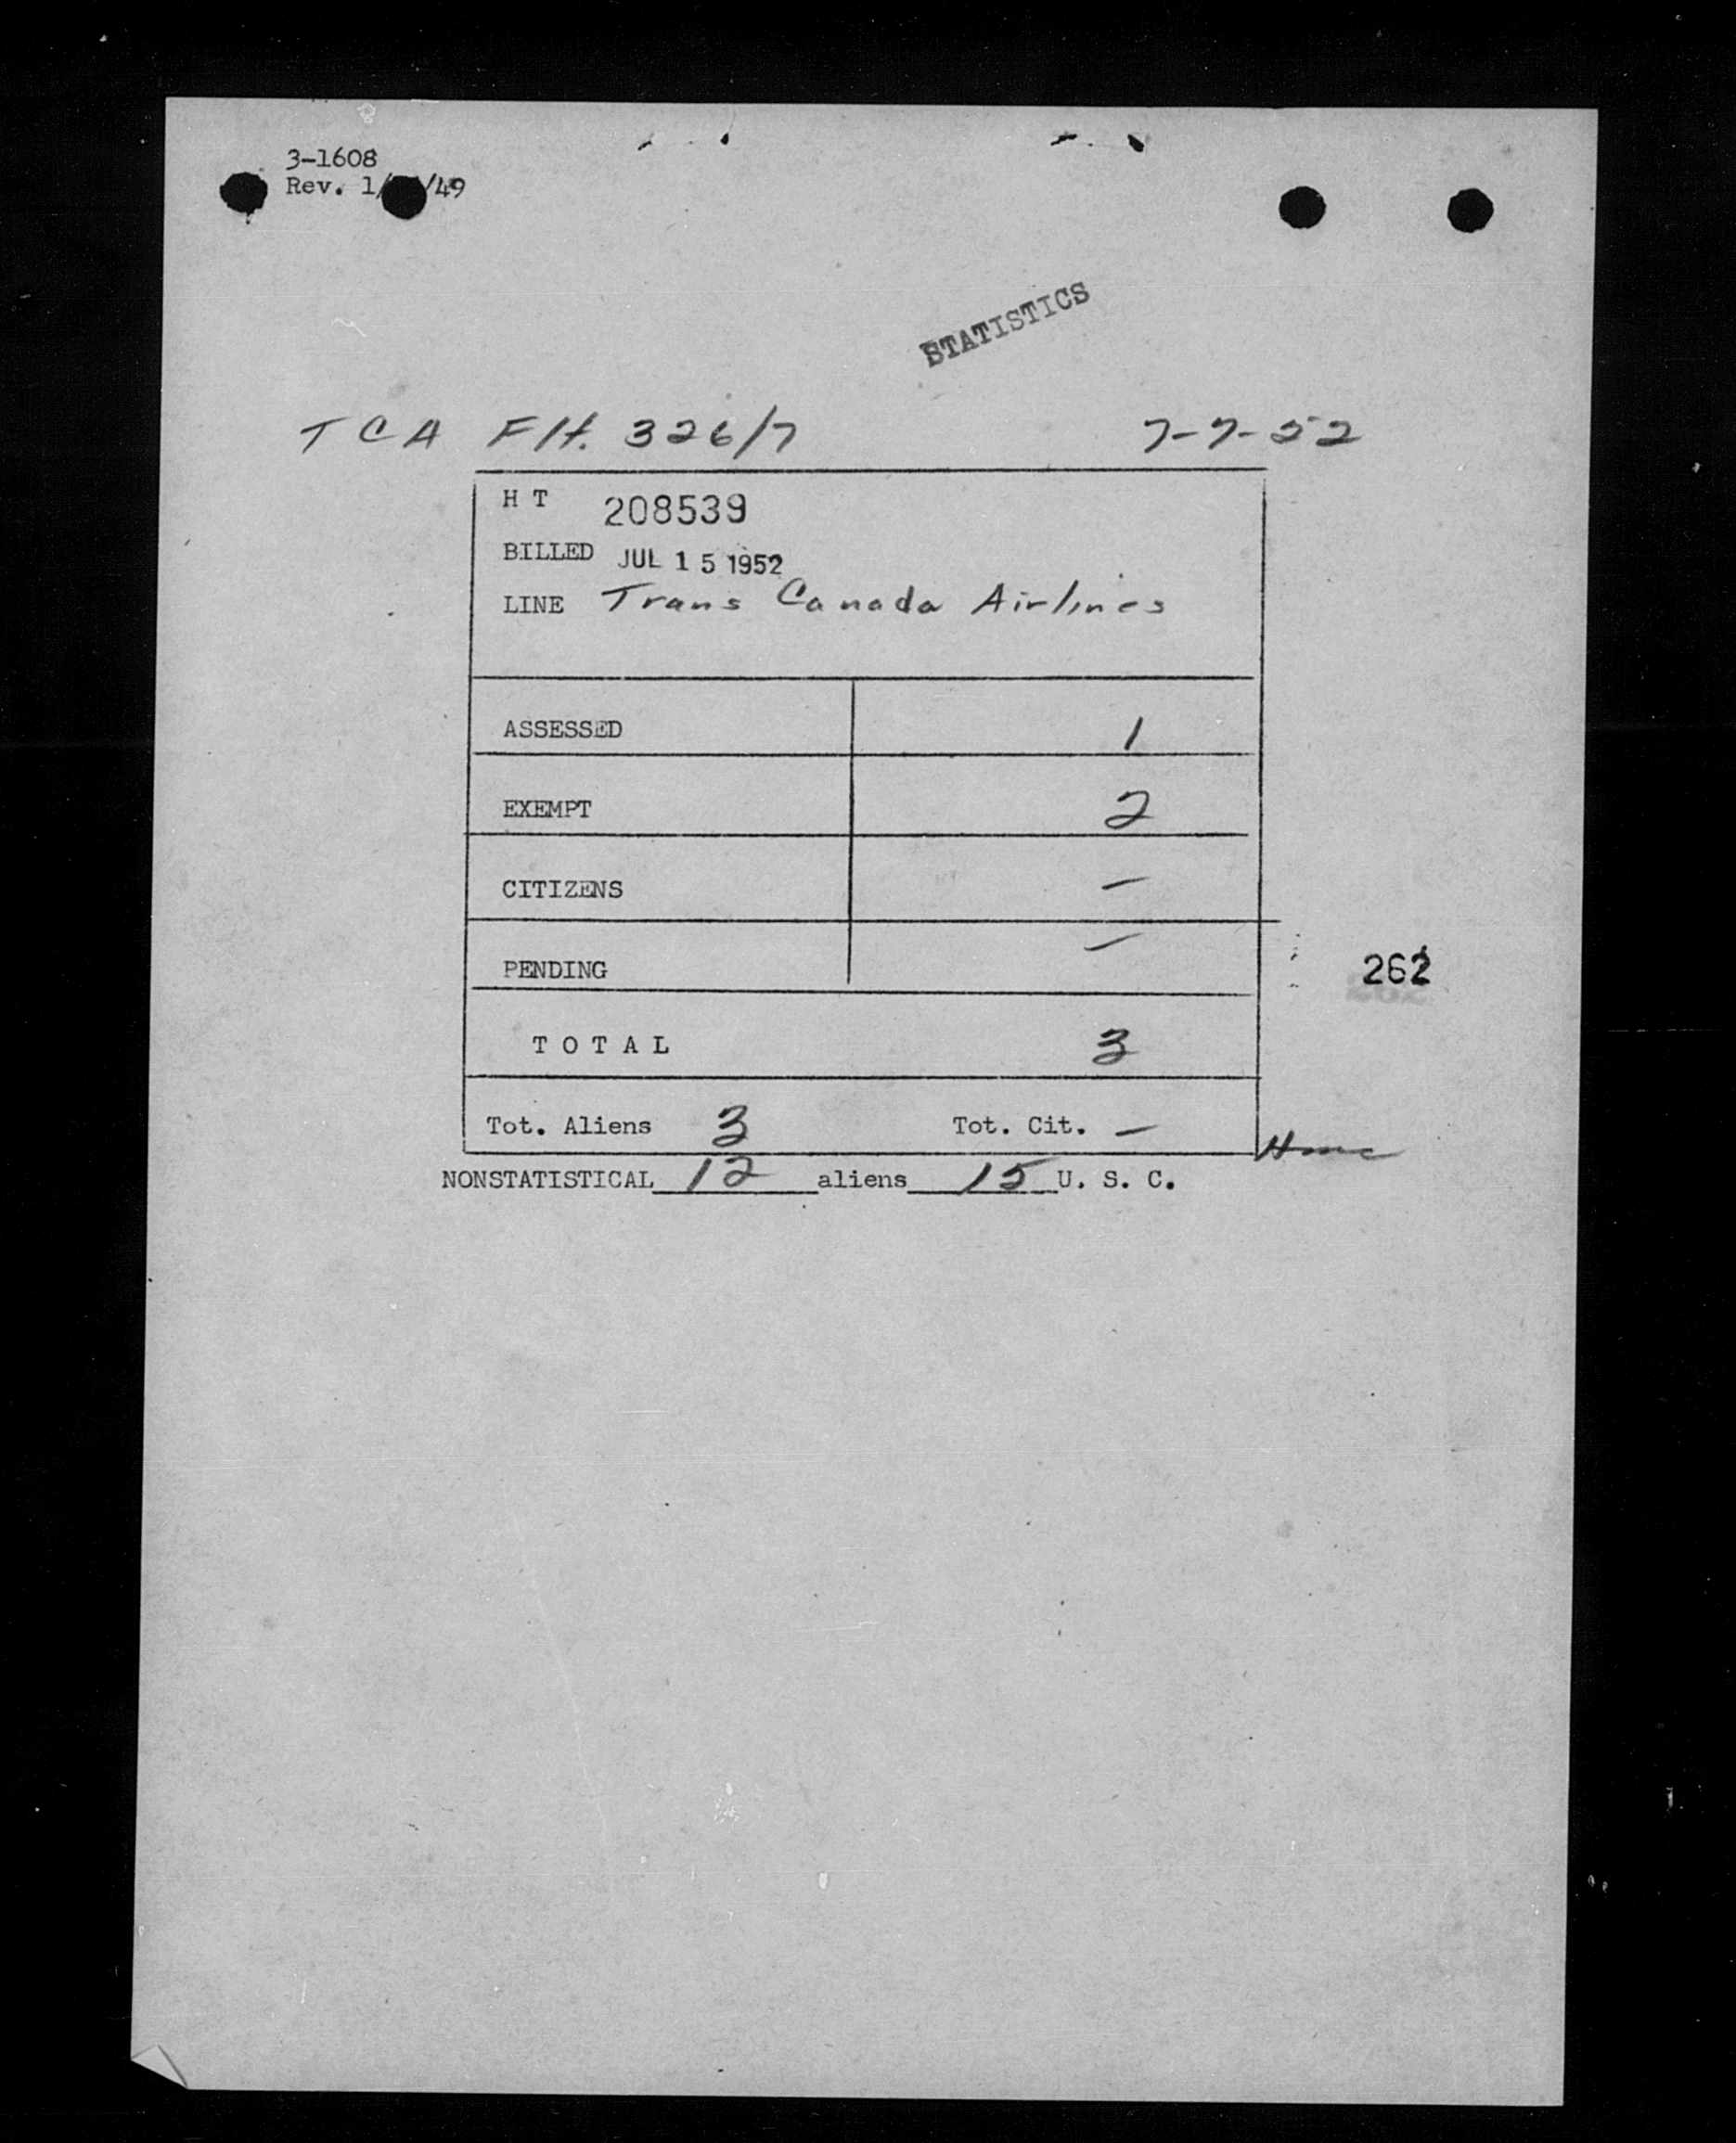 3-1608
Rev. 1/ /49
STATISTICS
TCA Flt. 326/7 7-7-52
H T 208539
BILLED JUL 15 1952
LINE Trans Canada Airlines
ASSESSED 1
EXEMPT 2
CITIZENS —
PENDING —
262
TOTAL 3
Tot. Aliens 3 Tot. Cit. —
NONSTATISTICAL 12 aliens 15 U. S. C.